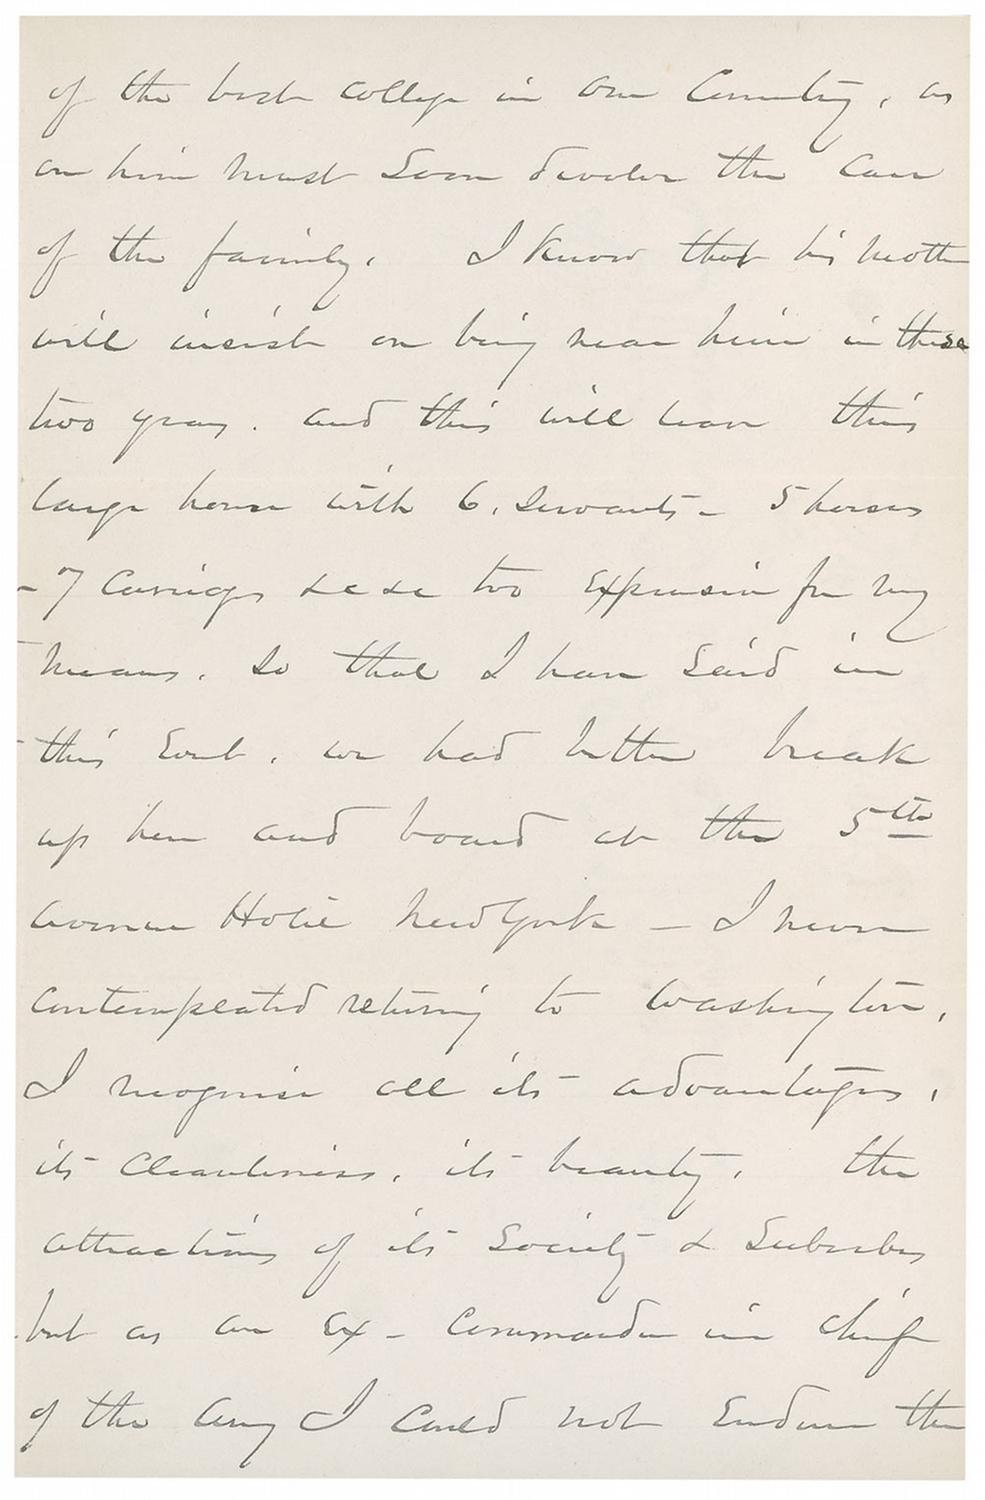 of the best college in our Country, as
on him must soon devolve the care
of the family. I know that his mother
will insist on being near him in these
two years. and this will leave this
large house with 6. servants - 5 horses
- 7 carriages &c &c too expensive for my
means. So that I have said in
this Sout. we had better break
up here and board at the 5th
Avenue Hotel New York - I never
contemplated returning to Washington.
I recognise all its advantages,
its cleanliness. its beauty. the
attractions of its Society & Suburbs
but as an Ex - Commander in chief
of the Army I could not endure the